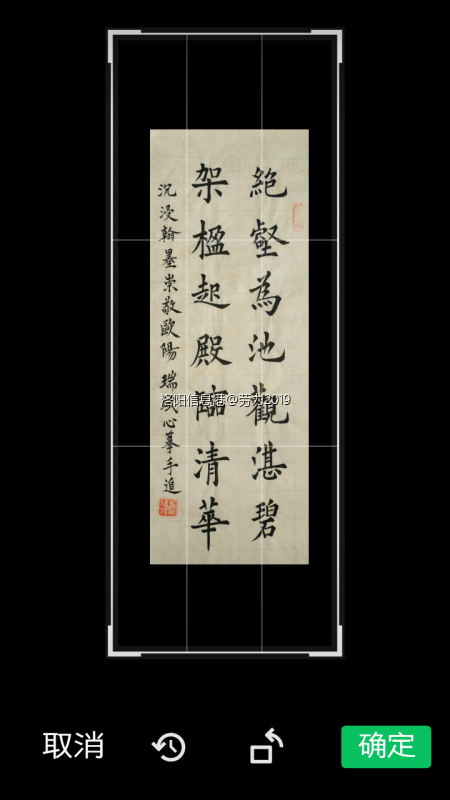 絶壑為池觀湛碧
架楹起殿臨清華
沉浸翰墨崇敬歐陽 瑞心摹手追
洛阳信息港@劳力2019
取消
确定